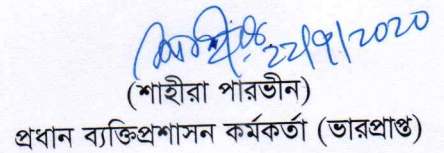 ২২/৭/2020
(শাহীরা পারভীন)
প্রধান ব্যক্তিপ্রশাসন কর্মকর্তা (ভারপ্রাপ্ত)